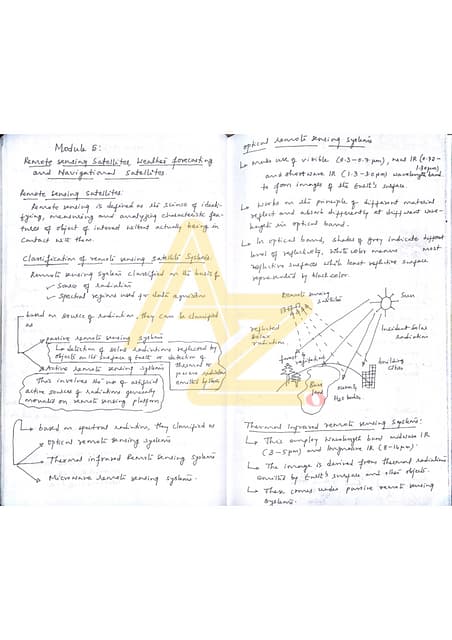 Module 5:
Remote sensing Satellites, Weather forecasting
and Navigational satellites
Remote sensing Satellites:
Remote sensing is defined as the science of identi-
fying, measuring and analyzing characteristic fea-
tures of object of interest without actually being in
contact with them.
Classification of remote sensing Satellite Systems:
Remote sensing system classified on the basis of
✓ Source of radiation
✓ Spectral regions used for data
based on source of radiation, they can be classified
as
passive remote sensing system
↳ detection of solar radiations reflected by
objects on the surface of earth or detection of
thermal or
passive radiation
emitted by them
Active remote sensing systems
This involves the use of artificial
active sources of radiations generally
mounted on remote sensing platform
↳ based on spectral radiation, they classified as
optical remote sensing systems
Thermal infrared Remote sensing systems
Microwave remote sensing systems.
optical remote sensing systems
↳ make use of visible (0.3-0.7 μm), near IR
and shortwave IR (1.3-3.0 μm) wavelength band
to form images of the Earth's surface.
↳ Works on the principle of different material
reflect and absorb differently at different wave-
length in optical band.
↳ In optical band, shades of grey indicate different
level of reflectivity, white color means most
reflective surfaces while least reflective surface
represented by black color.
Remote sensing
satellite
Sun
reflected
solar
radiation
Incident solar
radiation
forest &
vegetation
building
cities
Bare
land
H₂O bodies
Thermal infrared remote sensing Systems:
↳ This employ wavelength band midwave IR
(3-5 μm) and longwave IR (8-14 μm).
↳ The image is derived from thermal radiation
emitted by Earth's surface and other objects.
↳ comes under passive remote sensing
systems.